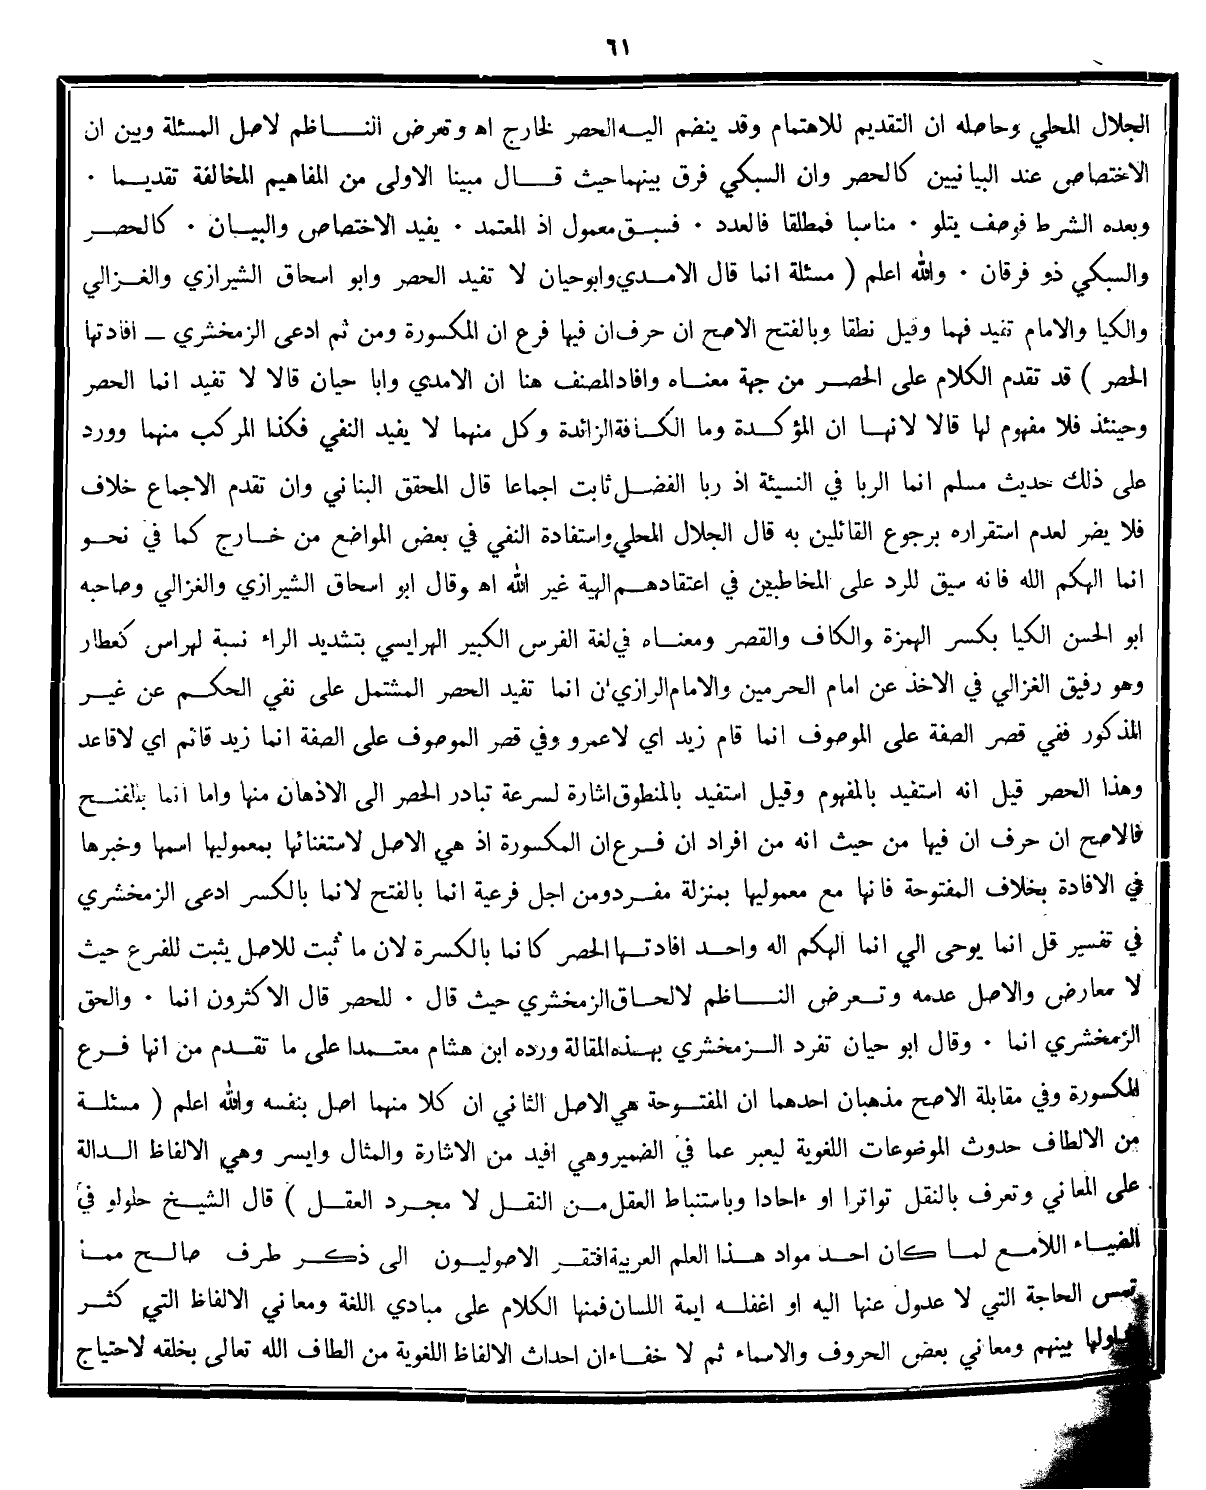 ٦١
الجلال المحلي وحاصله ان التقديم للاهتمام وقد ينضم اليه الحصر لخارج اه وتعرض النـاظم لاصل المسئلة وبين ان
الاختصاص عند البيانيين كالحصر وان السبكي فرق بينهما حيث قـال مبينا الاولى من المفاهيم المخالفة تقديـما ٠
وبعده الشرط فوصف يتلو ٠ مناسبا فمطلقا فالعدد ٠ فسبق معمول اذ المعتمد ٠ يفيد الاختصاص والبيـان ٠ كالحصر
والسبكي ذو فرقان ٠ والله اعلم ( مسئلة انما قال الامـدي وابوحيان لا تفيد الحصر وابو اسحاق الشيرازي والغـزالي
والكيا والامام تفيد فهما وقيل نطقا وبالفتح الاصح ان حرف ان فيها فرع ان المكسورة ومن ثم ادعى الزمخشري ـ افادتها
الحصر ) قد تقدم الكلام على الحصـر من جهة معنـاه وافاد المصنف هنا ان الامدي وابا حيان قالا لا تفيد انما الحصر
وحينئذ فلا مفهوم لها قالا لانهـا ان المؤكـدة وما الكـافة الزائدة وكل منهما لا يفيد النفي فكذا المركب منهما وورد
على ذلك حديث مسلم انما الربا في النسيئة اذ ربا الفضـل ثابت اجماعا قال المحقق البناني وان تقدم الاجماع خلاف
فلا يضر لعدم استقراره برجوع القائلين به قال الجلال المحلي واستفادة النفي في بعض المواضع من خـارج كما في نحـو
انما الهكم الله فانه سيق للرد على المخاطبين في اعتقادهـم الهية غير الله اه وقال ابو اسحاق الشيرازي والغزالي وصاحبه
ابو الحسن الكيا بكسر الهمزة والكاف والقصر ومعنـاه في لغة الفرس الكبير الهرايسي بتشديد الراء نسبة لهراس كعطار
وهو رفيق الغزالي في الاخذ عن امام الحرمين والامام الرازي ان انما تفيد الحصر المشتمل على نفي الحكـم عن غيـر
المذكور ففي قصر الصفة على الموصوف انما قام زيد اي لاعمرو وفي قصر الموصوف على الصفة انما زيد قائم اي لاقاعد
وهذا الحصر قيل انه استفيد بالمفهوم وقيل استفيد بالمنطوق اشارة لسرعة تبادر الحصر الى الاذهان منها واما انما بالفتـح
فالاصح ان حرف ان فيها من حيث انه من افراد ان فـرع ان المكسورة اذ هي الاصل لاستغنائها بمعموليها اسمها وخبرها
في الافادة بخلاف المفتوحة فانها مع معموليها بمنزلة مفـرد ومن اجل فرعية انما بالفتح لانما بالكسر ادعى الزمخشري
في تفسير قل انما يوحى الي انما الهكم اله واحـد افادتـها الحصر كانما بالكسرة لان ما ثبت للاصل يثبت للفرع حيث
لا معارض والاصل عدمه وتـعرض النـاظم لالحـاق الزمخشري حيث قال ٠ للحصر قال الاكثرون انما ٠ والحق
الزمخشري انما ٠ وقال ابو حيان تفرد الـزمخشري بهـذه المقالة ورده ابن هشام معتمدا على ما تقـدم من انها فـرع
المكسورة وفي مقابلة الاصح مذهبان احدهما ان المفتـوحة هي الاصل الثاني ان كلا منهما اصل بنفسه والله اعلم ( مسئلـة
من الالطاف حدوث الموضوعات اللغوية ليعبر عما في الضمير وهي افيد من الاشارة والمثال وايسر وهي الالفاظ الـدالة
على المعاني وتعرف بالنقل تواترا او ءاحادا وباستنباط العقل مـن النقـل لا مجـرد العقـل ) قال الشيـخ حلولو في
الضيـاء اللامـع لمـا كان احـد مواد هـذا العلم العربية افتقـر الاصوليـون الى ذكـر طرف صالـح ممـا
تمس الحاجة التي لا عدول عنها اليه او اغفلـه ايمة اللسان فمنها الكلام على مبادي اللغة ومعاني الالفاظ التي كثـر
بينهم ومعاني بعض الحروف والاسماء ثم لا خفـاء ان احداث الالفاظ اللغوية من الطاف الله تعالى بخلقه لاحتياج